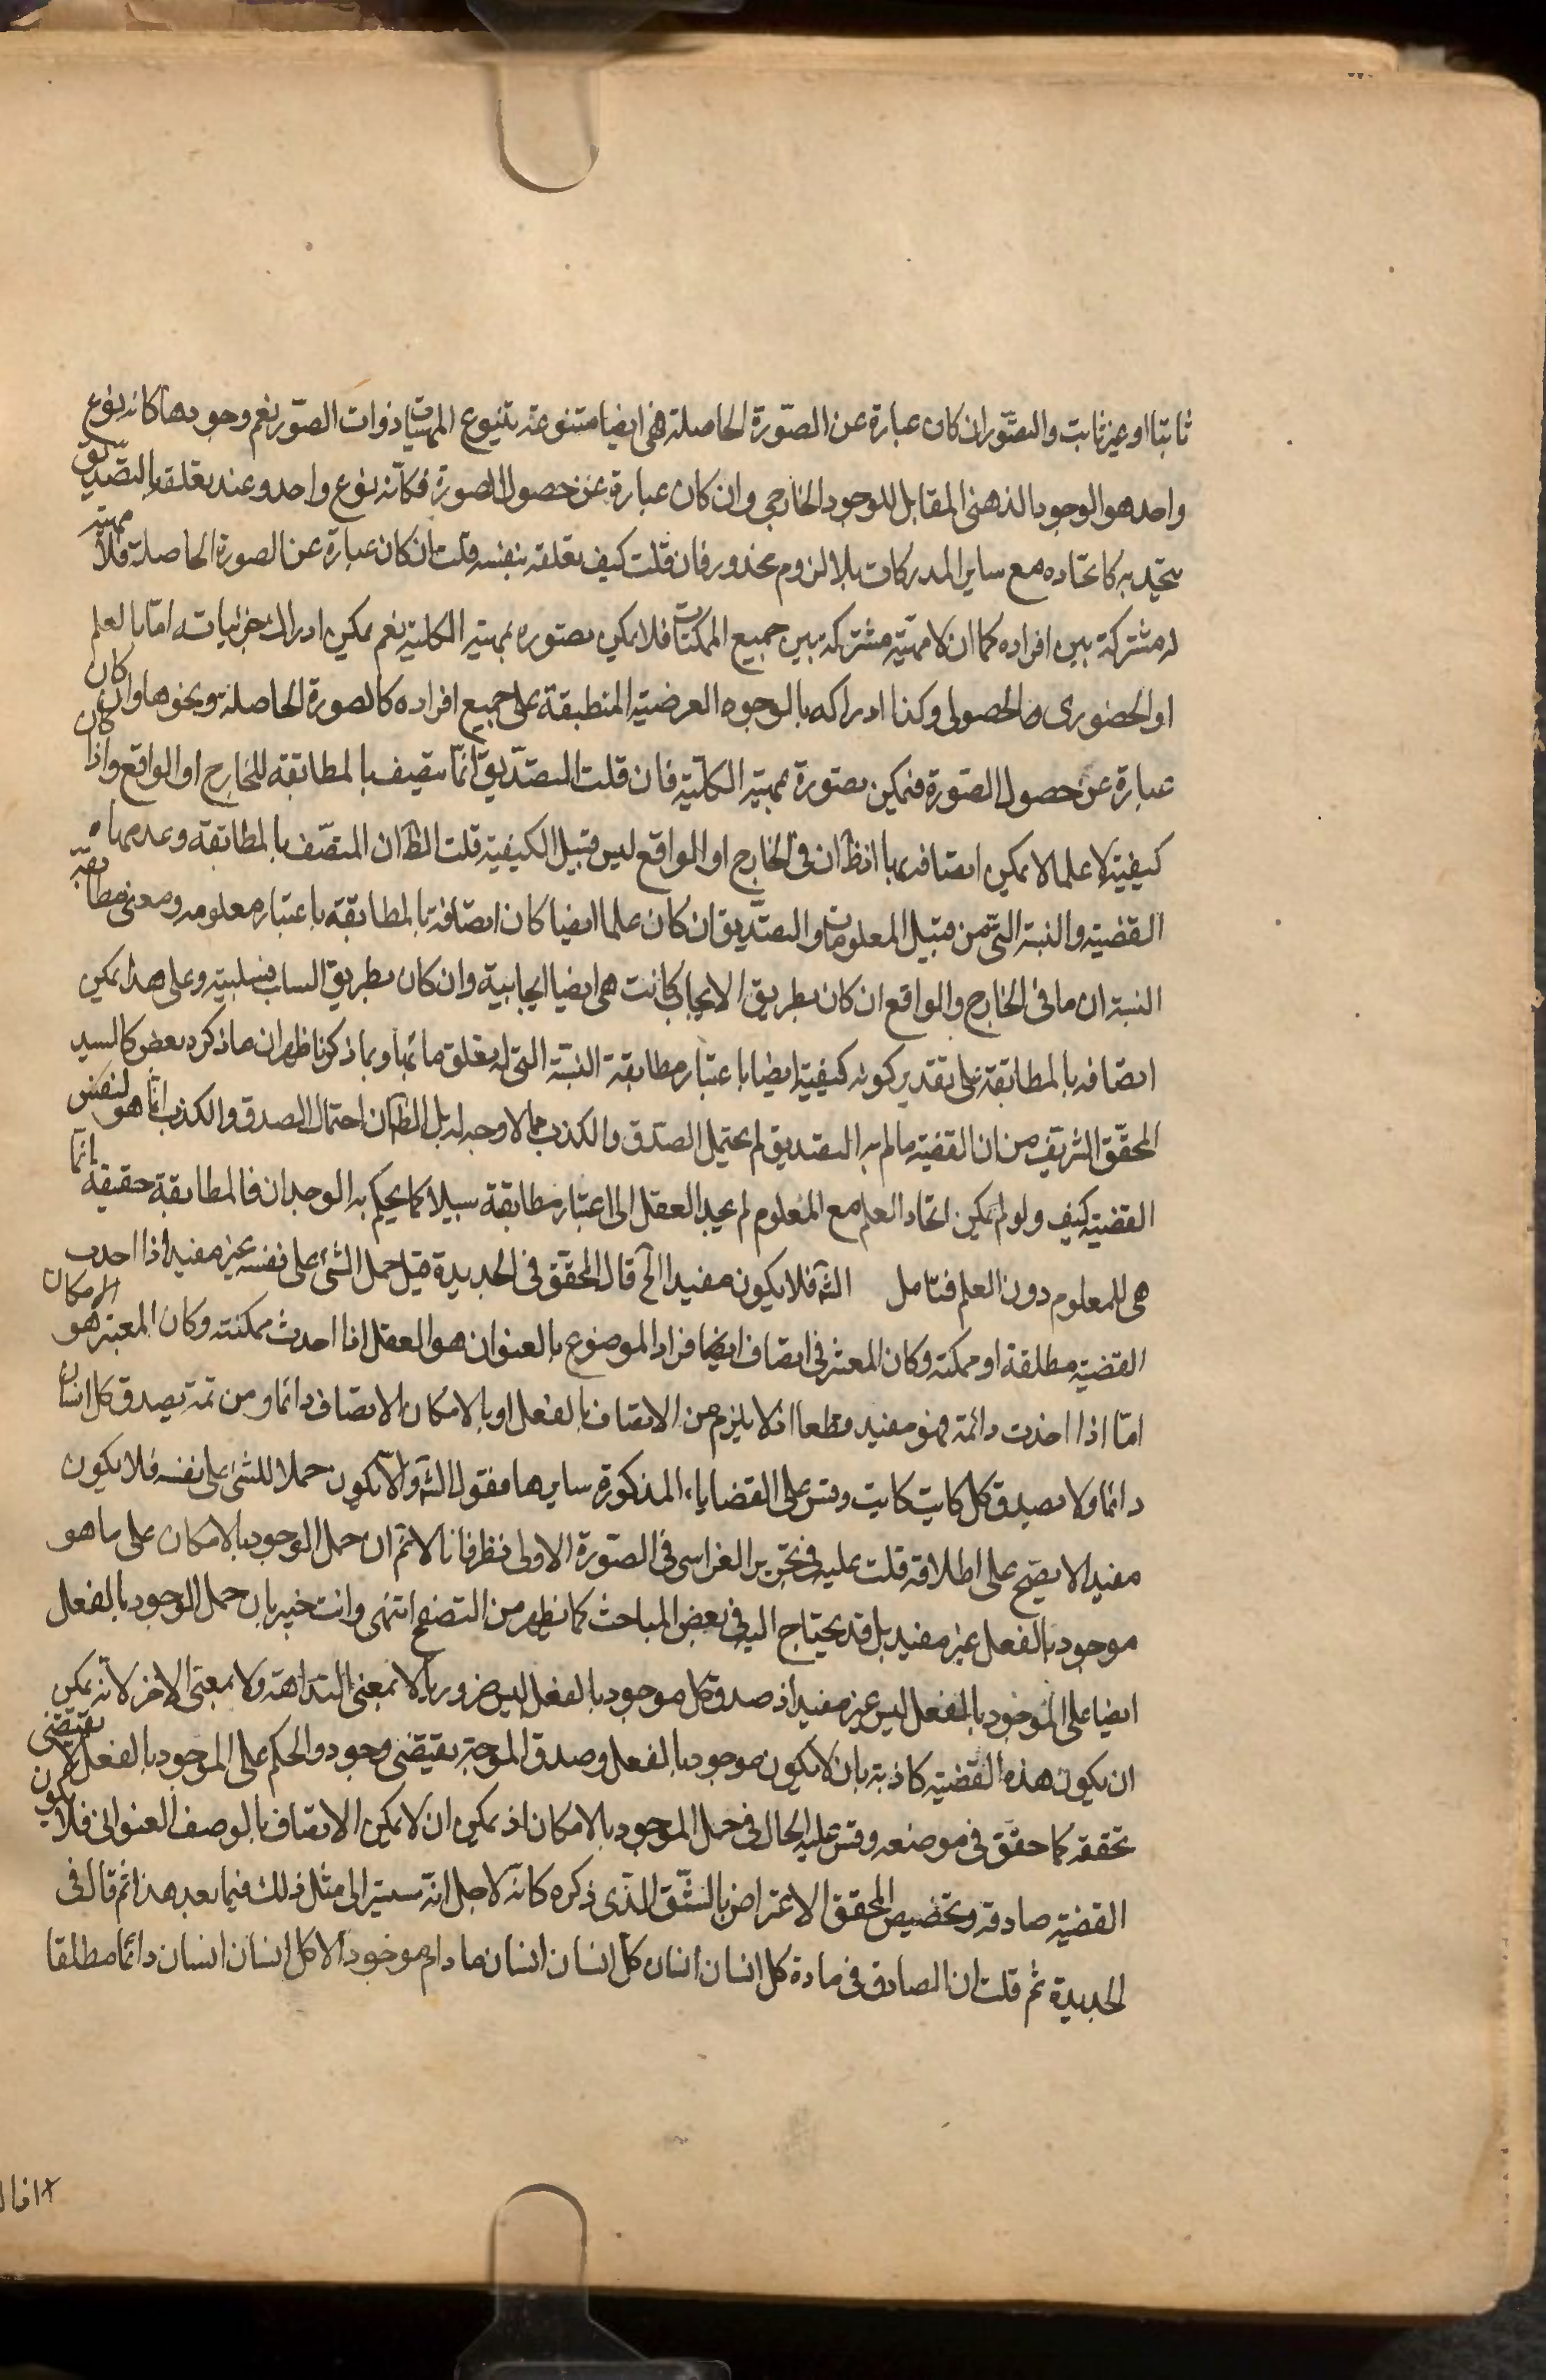 ثابتا او غير ثابت والتصور ان كان عبارة عن الصورة الحاصلة فهى ايضا متنوعة بتنوع المهيات ذوات الصور نعم وجودها كانه نوع
واحد هو الوجود الذهنى المقابل للوجود الخارجى وان كان عبارة عن حصول الصورة فكانه نوع واحد وعند تعلقه بالتصديق
يتحد به كاتحاده مع ساير المدركات بلا لزوم محذور فان قلت كيف تعلقه بنفسه قلت ان كان عبارة عن الصورة الحاصلة فلا مهية
له مشتركة بين افراده كما ان لا مهية مشتركة بين جميع الممكنات فلا يمكن تصوره بمهيته الكلية نعم يمكن ادراك جزئياته اما بالعلم
او الحضورى والحصولى وكذا ادراكه بالوجوه العرضية المنطبقة على جميع افراده كالصورة الحاصلة ونحوها وان كان
عبارة عن حصول الصورة فيمكن تصوره بمهيته الكلية فان قلت التصديق انما يتصف بالمطابقة للخارج او الواقع واذا كان
كيفية لا علما لا يمكن اتصافه بها اذ ظ ان فى الخارج او الواقع ليس قبيل الكيفية قلت الظ ان المتصف بالمطابقة وعدمها ه
القضية والنسبة التى من قبيل المعلومات والتصديق ان كان علما ايضا كان اتصافه بالمطابقة باعتبار معلومه ومعنى مطابقة
النسبة ان ما فى الخارج والواقع ان كان بطريق الايجاب كانت هى ايضا ايجابية وان كان بطريق السلب فسلبية وعلى هذا يمكن
اتصافه بالمطابقة على تقدير كونه كيفية ايضا باعتبار مطابقة النسبة التى له تعلق ما بها وبما ذكرنا ظهر ان ما ذكره بعض كالسيد
المحقق الشريف من ان القضية ما لم به التصديق لم يحتمل الصدق والكذب مما لا وجه له بل الظ ان احتمال الصدق والكذب انما هو لنفس
القضية كيف ولو لم يمكن اتحاد العلم مع المعلوم لم يجد العقل الى اعتبار مطابقة سبيلا كما يحكم به الوجدان فالمطابقة حقيقة انما
هى للمعلوم دون العلم فتامل الش فلا يكون مفيدا الخ قال المحقق فى الجديدة قيل حمل الشئ على نفسه غير مفيد اذا اخذت
القضية مطلقة او ممكنة وكان المعتبر فى اتصاف افراد الموضوع بالعنوان هو العقل اذا اخذت ممكنة وكان المعتبر هو الامكان
اما اذا اخذت دائمة فهو مفيد قطعا اذ لا يلزم من الاتصاف بالفعل او بالامكان الاتصاف دائما ومن ثمة يصدق كل انسان
دائما ولا يصدق كل كاتب كاتب وقس على القضايا المذكورة سايرها فقول الش والا يكون حملا للشئ على نفسه فلا يكون
مفيدا لا يصح على اطلاقه قلت عليه فى تحرير الفراسى فى الصورة الاولى نظر فانا لا نم ان حمل الوجود بالامكان على ما هو
موجود بالفعل غير مفيد بل قد يحتاج اليه فى بعض المباحث كما يظهر من التصفح انتهى وانت خبير بان حمل الوجود بالفعل
ايضا على الموجود بالفعل ليس غير مفيد اذ صدق كل موجود بالفعل ليس ضروريا لا بمعنى البداهة ولا بمعنى الاخر لانه يمكن
ان يكون هذه القضية كاذبة بان لا يكون موجود بالفعل وصدق الموجبة يقتضى وجود والحكم على الموجود بالفعل لا يقتضى
تحققه كما حقق فى موضعه وقس عليه الحال فى حمل الموجود بالامكان اذ يمكن ان لا يمكن الاتصاف بالوصف العنوانى فلا يكون
القضية صادقة وتخصيص المحقق الاعتراض بالشق الذى ذكره كانه لاجل انه سيشير الى مثل ذلك فيما بعد هذا ثم قال فى
الجديدة ثم قلت ان الصادق فى مادة كل انسان انسان كل انسان انسان ما دام موجودا لا كل انسان انسان دائما مطلقا